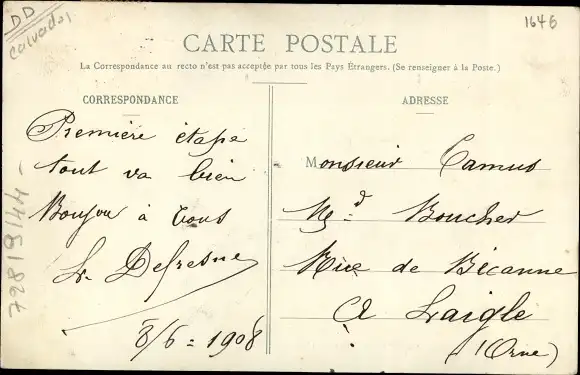 DD
Calvados
1646
CARTE POSTALE
La Correspondance au recto n'est pas acceptée par tous les Pays Étrangers. (Se renseigner à la Poste.)
CORRESPONDANCE
Première étape
tout va bien
Bonjour à tous
L. Defresne
8/6 = 1908
ADRESSE
Monsieur Camus
Md Boucher
Rue de Bécanne
A Laigle
(Orne)
72819144-